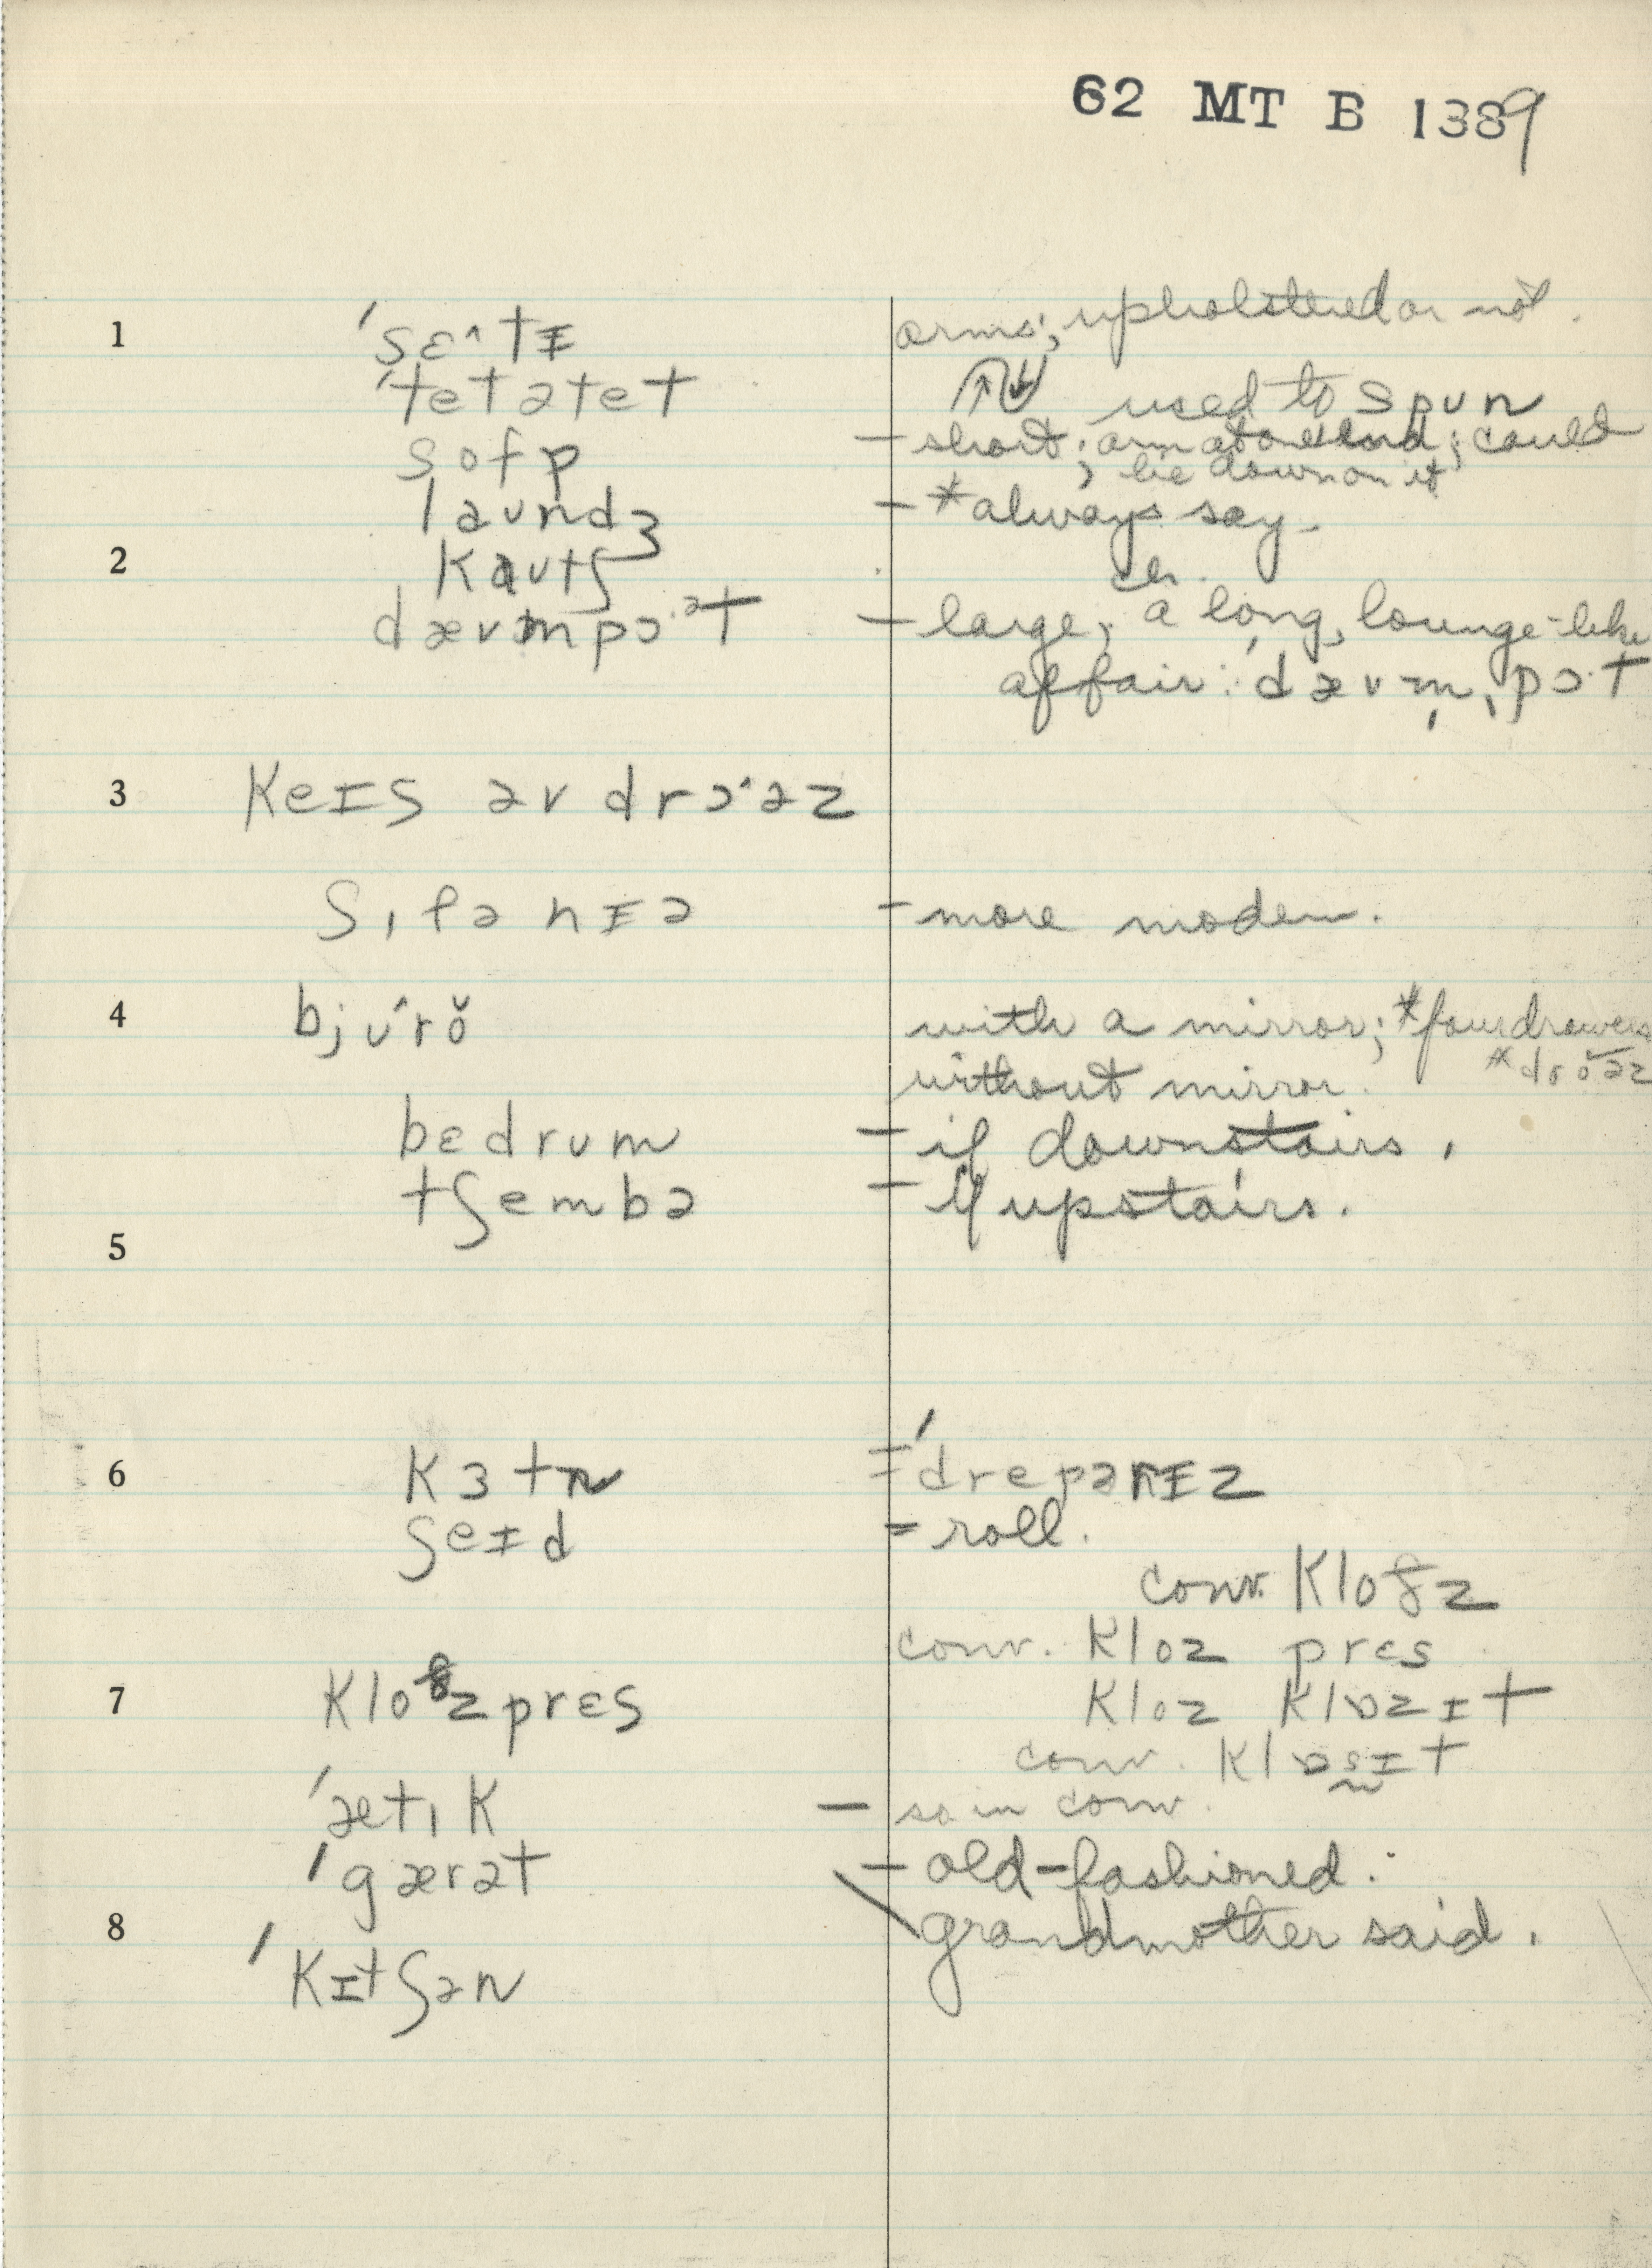 62 MT B 1389
1 'sɛ^tɪ arms; upholstered or not.
'tetətet used to spun
sofə – short; arm at one end; could
lie down on it
laundʒ – *always say.
2 kautʃ ch.
dævmpɔ·ət – large; a long, lounge-like
affair: 'dævm̩ˌpɔ·t
3 keɪs əv drɔ·əz
ʃɪfənɪə – more modern.
4 bjʊ^rŏ with a mirror; *four drawers
*droəz
without mirror.
bɛdrum – if downstairs.
tʃembə – if upstairs.
5
6 kɜtn = 'drepərɪz
ʃeɪd = roll.
conv. kloðz
conv. kloz prɛs
7 kloðzprɛs kloz klɒzɪt
conv. klɒsɪt
'ætɪk – so in conv.
'gærət – old-fashioned:
8 grandmother said.
'kɪtʃən